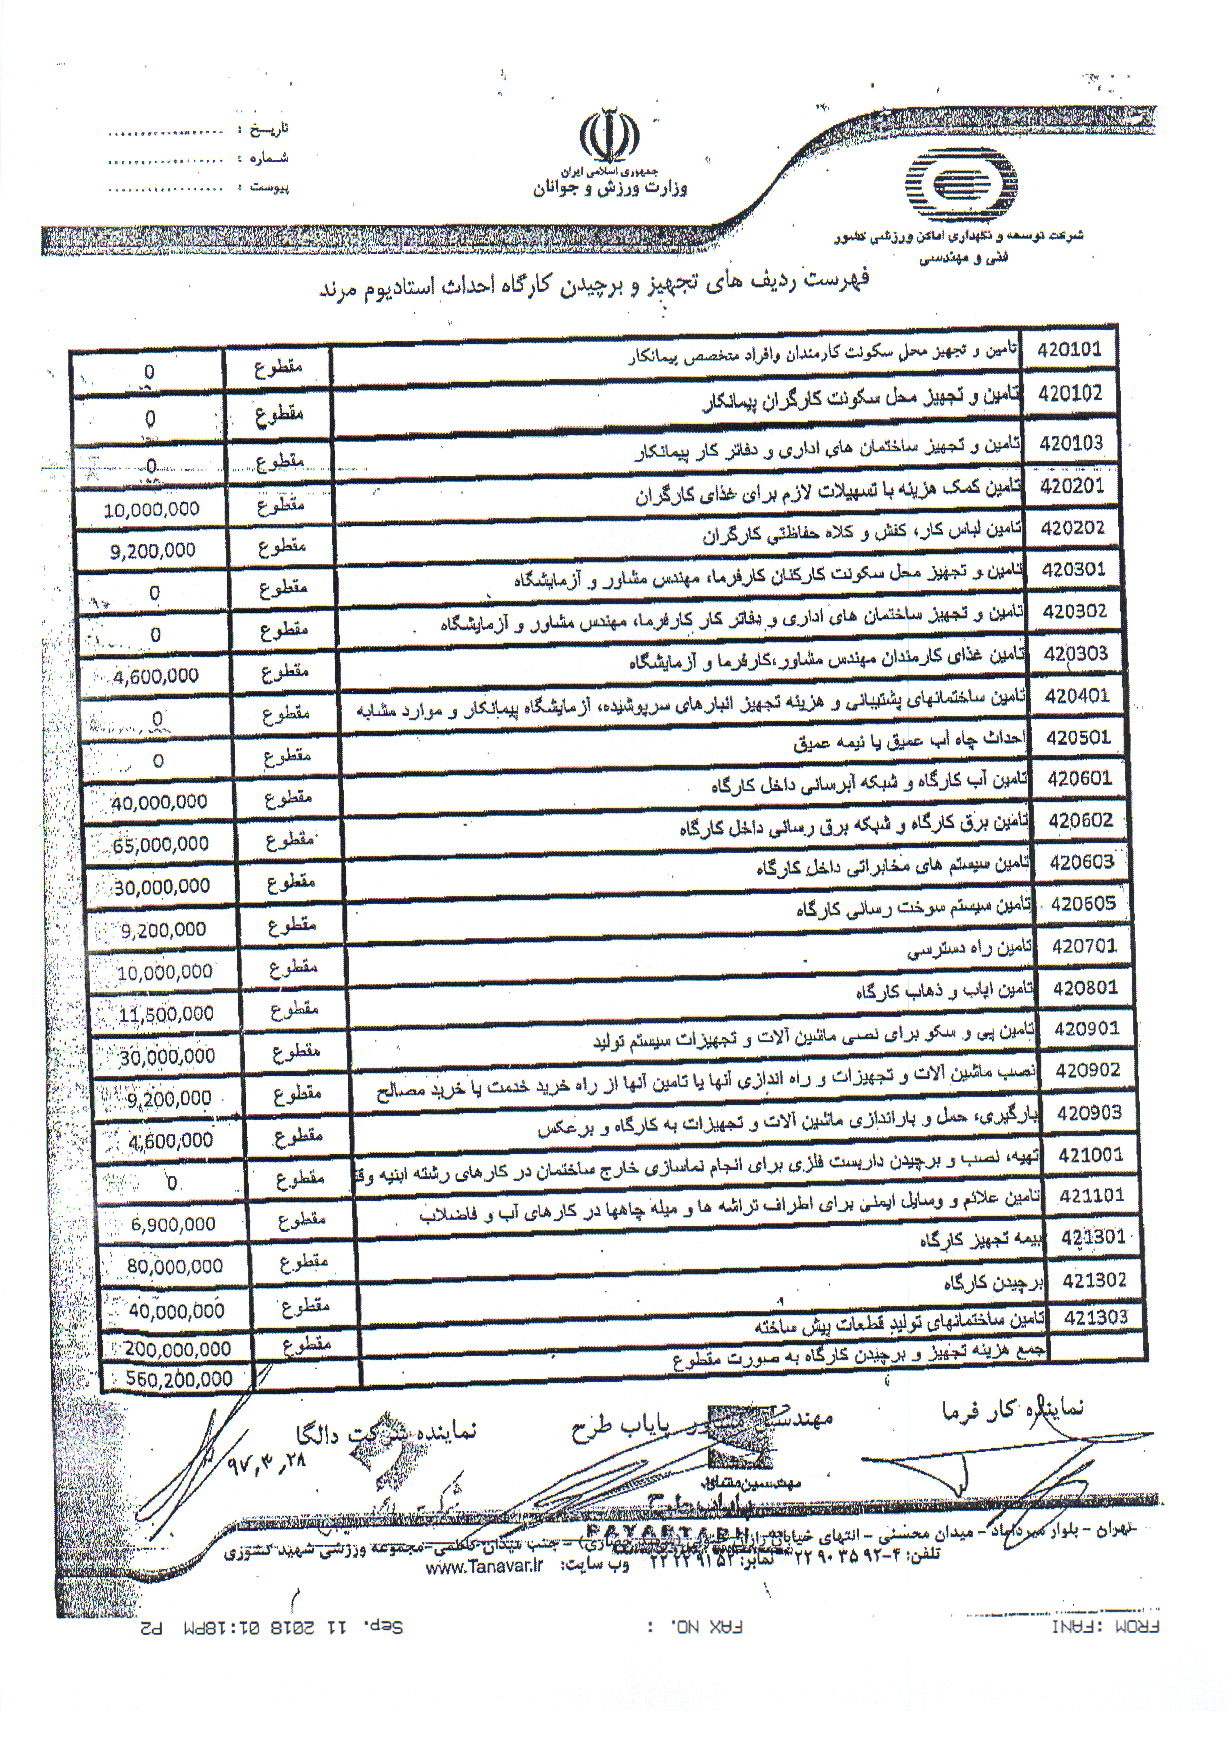 تاریخ : ..................
شماره : ..................
پیوست : ..................
جمهوری اسلامی ایران
وزارت ورزش و جوانان
شرکت توسعه و نگهداری اماکن ورزشی کشور
فنی و مهندسی
فهرست ردیف های تجهیز و برچیدن کارگاه احداث استادیوم مرند
420101 تامین و تجهیز محل سکونت کارمندان وافراد متخصص پیمانکار مقطوع 0
420102 تامین و تجهیز محل سکونت کارگران پیمانکار مقطوع 0
420103 تامین و تجهیز ساختمان های اداری و دفاتر کار پیمانکار مقطوع 0
420201 تامین کمک هزینه با تسهیلات لازم برای غذای کارگران مقطوع 10,000,000
420202 تامین لباس کار، کفش و کلاه حفاظتی کارگران مقطوع 9,200,000
420301 تامین و تجهیز محل سکونت کارکنان کارفرما، مهندس مشاور و آزمایشگاه مقطوع 0
420302 تامین و تجهیز ساختمان های اداری و دفاتر کار کارفرما، مهندس مشاور و آزمایشگاه مقطوع 0
420303 تامین غذای کارمندان مهندس مشاور،کارفرما و آزمایشگاه مقطوع 4,600,000
420401 تامین ساختمانهای پشتیبانی و هزینه تجهیز انبارهای سرپوشیده، آزمایشگاه پیمانکار و موارد مشابه مقطوع 0
420501 احداث چاه آب عمیق یا نیمه عمیق مقطوع 0
420601 تامین آب کارگاه و شبکه آبرسانی داخل کارگاه مقطوع 40,000,000
420602 تامین برق کارگاه و شبکه برق رسانی داخل کارگاه مقطوع 65,000,000
420603 تامین سیستم های مخابراتی داخل کارگاه مقطوع 30,000,000
420605 تامین سیستم سوخت رسانی کارگاه مقطوع 9,200,000
420701 تامین راه دسترسی مقطوع 10,000,000
420801 تامین ایاب و ذهاب کارگاه مقطوع 11,500,000
420901 تامین پی و سکو برای نصب ماشین آلات و تجهیزات سیستم تولید مقطوع 30,000,000
420902 نصب ماشین آلات و تجهیزات و راه اندازی آنها یا تامین آنها از راه خرید خدمت یا خرید مصالح مقطوع 9,200,000
420903 بارگیری، حمل و باراندازی ماشین آلات و تجهیزات به کارگاه و برعکس مقطوع 4,600,000
421001 تهیه، نصب و برچیدن داربست فلزی برای انجام نماسازی خارج ساختمان در کارهای رشته ابنیه وقت مقطوع 0
421101 تامین علائم و وسایل ایمنی برای اطراف ترانشه ها و میله چاهها در کارهای آب و فاضلاب مقطوع 6,900,000
421301 بیمه تجهیز کارگاه مقطوع 80,000,000
421302 برچیدن کارگاه مقطوع 40,000,000
421303 تامین ساختمانهای تولید قطعات پیش ساخته مقطوع 200,000,000
جمع هزینه تجهیز و برچیدن کارگاه به صورت مقطوع 560,200,000
نماینده کار فرما
مهندسین مشاور پایاب طرح
نماینده شرکت دالگا
۹۷,۳,۲۸
مهندسین مشاور
پایاب طرح
PAYABTARH
تهران - بلوار میرداماد - میدان محسنی - انتهای خیابان - جنب میدان کاظمی - مجموعه ورزشی شهید کشوری
تلفن: ۴-۲۲۹۰۳۵۹۲ نمابر: ۲۲۲۲۹۱۵۲ وب سایت: www.Tanavar.ir
FROM :FANI FAX NO. : Sep. 11 2018 01:18PM P2